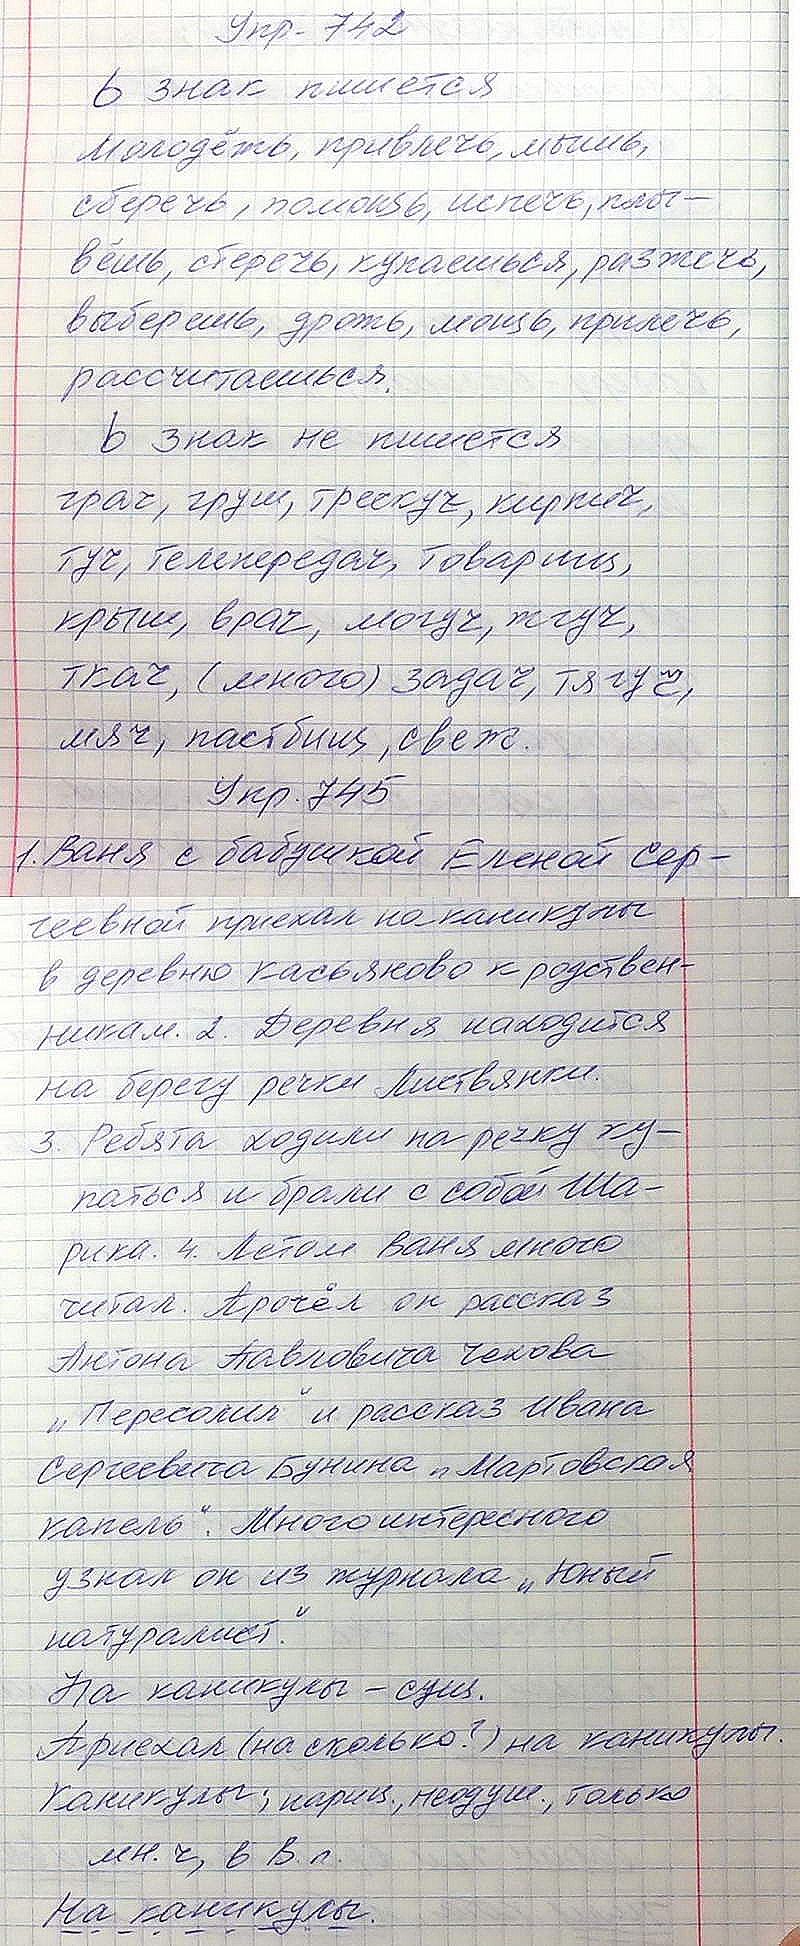 Упр. 742
ь знак пишется
Молодёжь, привлечь, мышь,
сберечь, помощь, испечь, плы-
вёшь, стеречь, купаешься, разжечь,
выберешь, дрожь, мощь, прилечь,
рассчитаешься.
ь знак не пишется
грач, груш, трескуч, кирпич,
туч, телепередач, товарищ,
крыш, врач, могуч, жгуч,
ткач, (много) задач, тягуч,
мяч, пастбищ, свеж.
Упр. 745
1. Ваня с бабушкой Еленой Сер-
геевной приехал на каникулы
в деревню Касьяново к родствен-
никам. 2. Деревня находится
на берегу речки Листвянки.
3. Ребята ходили на речку ку-
паться и брали с собой Ша-
рика. 4. Летом Ваня много
читал. Прочёл он рассказ
Антона Павловича Чехова
„Пересолил“ и рассказ Ивана
Сергеевича Бунина „Мартовская
капель“. Много интересного
узнал он из журнала „Юный
натуралист.“
На каникулы – сущ.
Приехал (на сколько?) на каникулы.
Каникулы; нариц., неодуш., только
мн. ч, в В. п.
На каникулы.